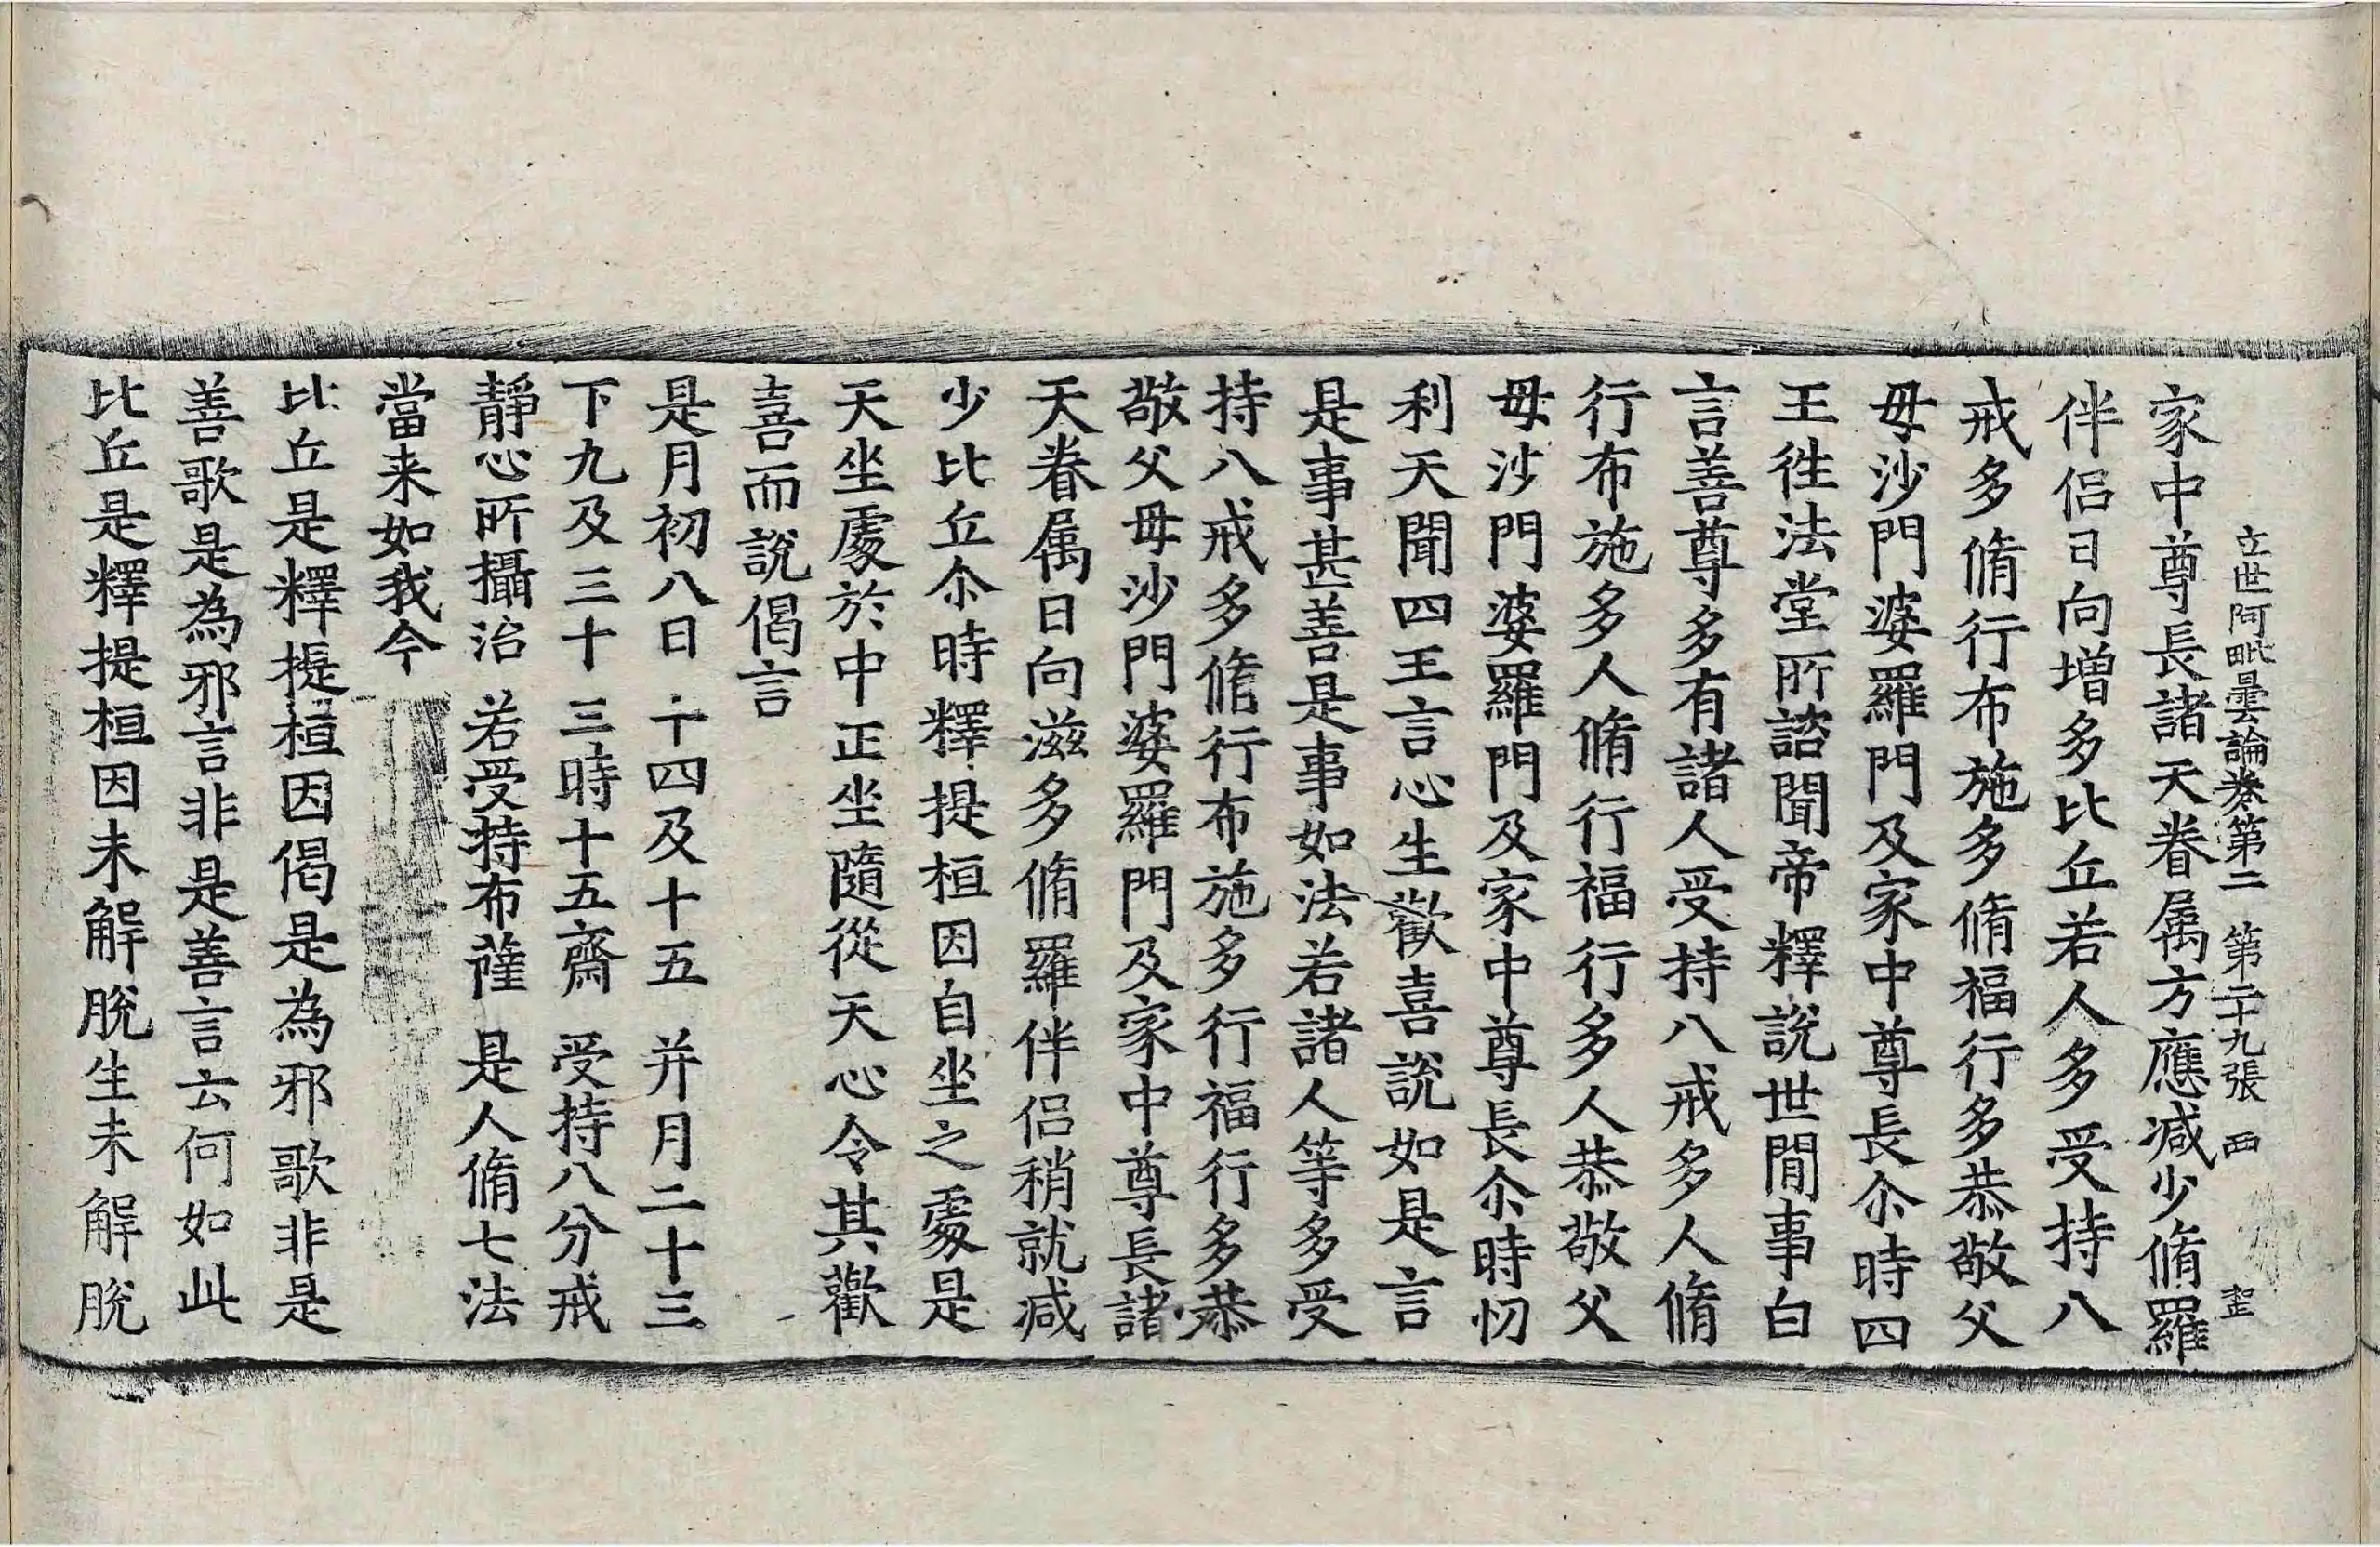 立世阿毗曇論卷第二 第二十九張 西 聖
家中尊長諸天眷属方應减少脩羅
伴侣日向增多比丘若人多受持八
戒多脩行布施多脩福行多恭敬父
毋沙門婆羅門及家中尊長尒時四
王徃法堂所諮聞帝釋說世間事白
言善尊多有諸人受持八戒多人脩
行布施多人脩行福行多人恭敬父
毋沙門婆羅門及家中尊長尒時忉
利天聞四王言心生歡喜說如是言
是事甚善是事如法若諸人等多受
持八戒多脩行布施多行福行多恭
敬父毋沙門婆羅門及家中尊長諸
天眷属日向滋多脩羅伴侣稍就减
少比丘尒時釋提桓因自坐之處是
天坐處於中正坐隨從天心令其歡
喜而說偈言
是月初八日 十四及十五 并月二十三
下九及三十 三時十五齋 受持八分戒
靜心所攝治 若受持布薩 是人脩七法
當来如我今
比丘是釋提桓因偈是為邪歌非是
善歌是為邪言非是善言云何如此
比丘是釋提桓因未解脫生未解脫